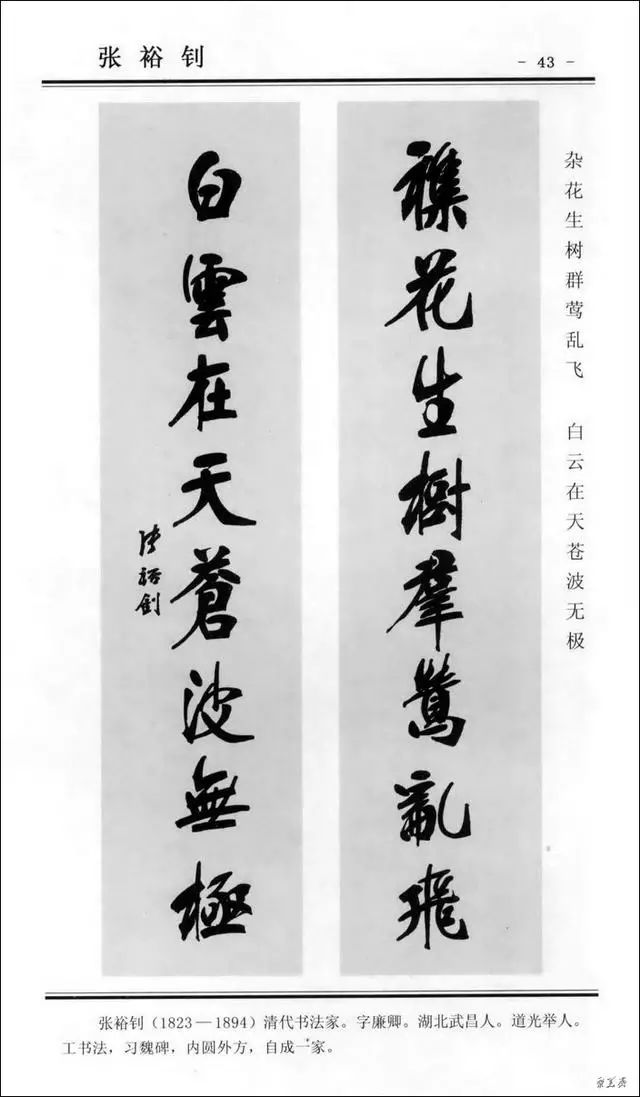 张裕钊
- 43 -
杂花生树群莺乱飞 白云在天苍波无极
襍花生樹羣鶯亂飛
白雲在天蒼波無極
張裕釗
张裕钊（1823—1894）清代书法家。字廉卿。湖北武昌人。道光举人。
工书法，习魏碑，内圆外方，自成一家。